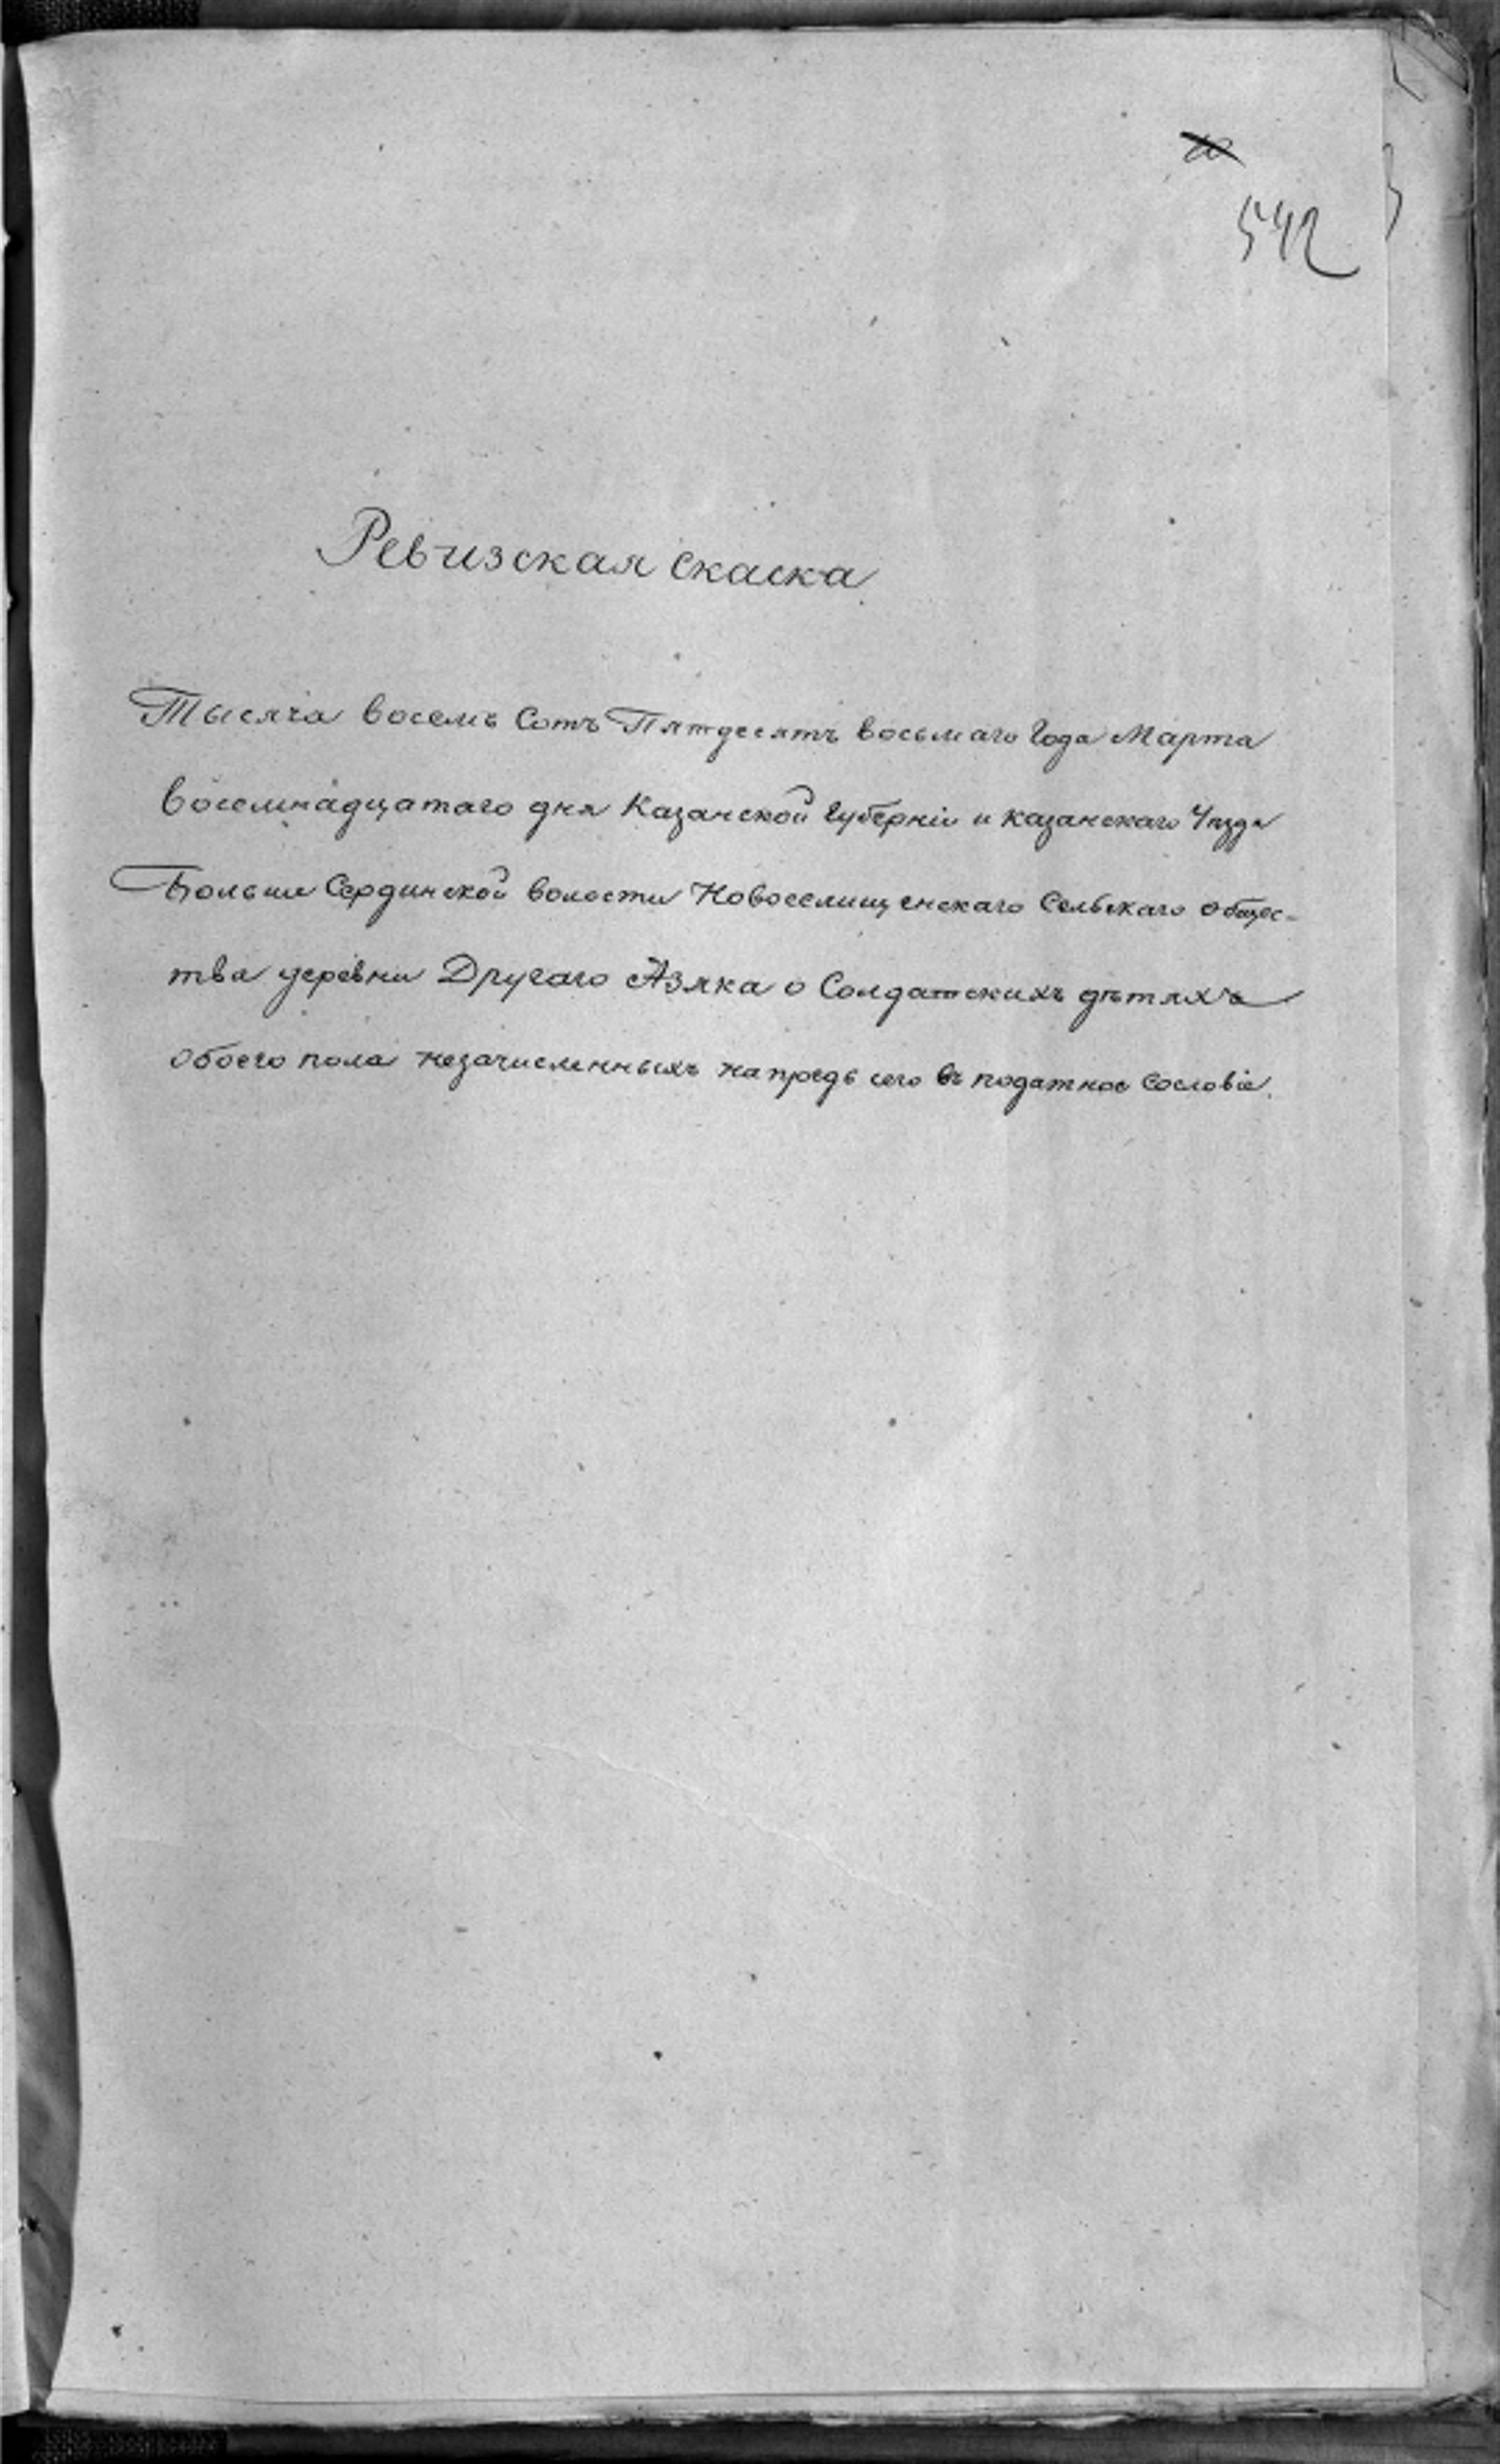 542
Ревизская скаска
Тысяча восемь Сотъ Пятдесятъ восьмаго Года Марта
восемнадцатаго дня Казанской Губерніи и Казанскаго Уѣзда
Больше Сердинской волости Новоселищенскаго Сельскаго Общес-
тва деревни Другаго Азяка о Солдатскихъ дѣтяхъ
обоего пола незачисленныхъ напредь сего въ податное сословіе.